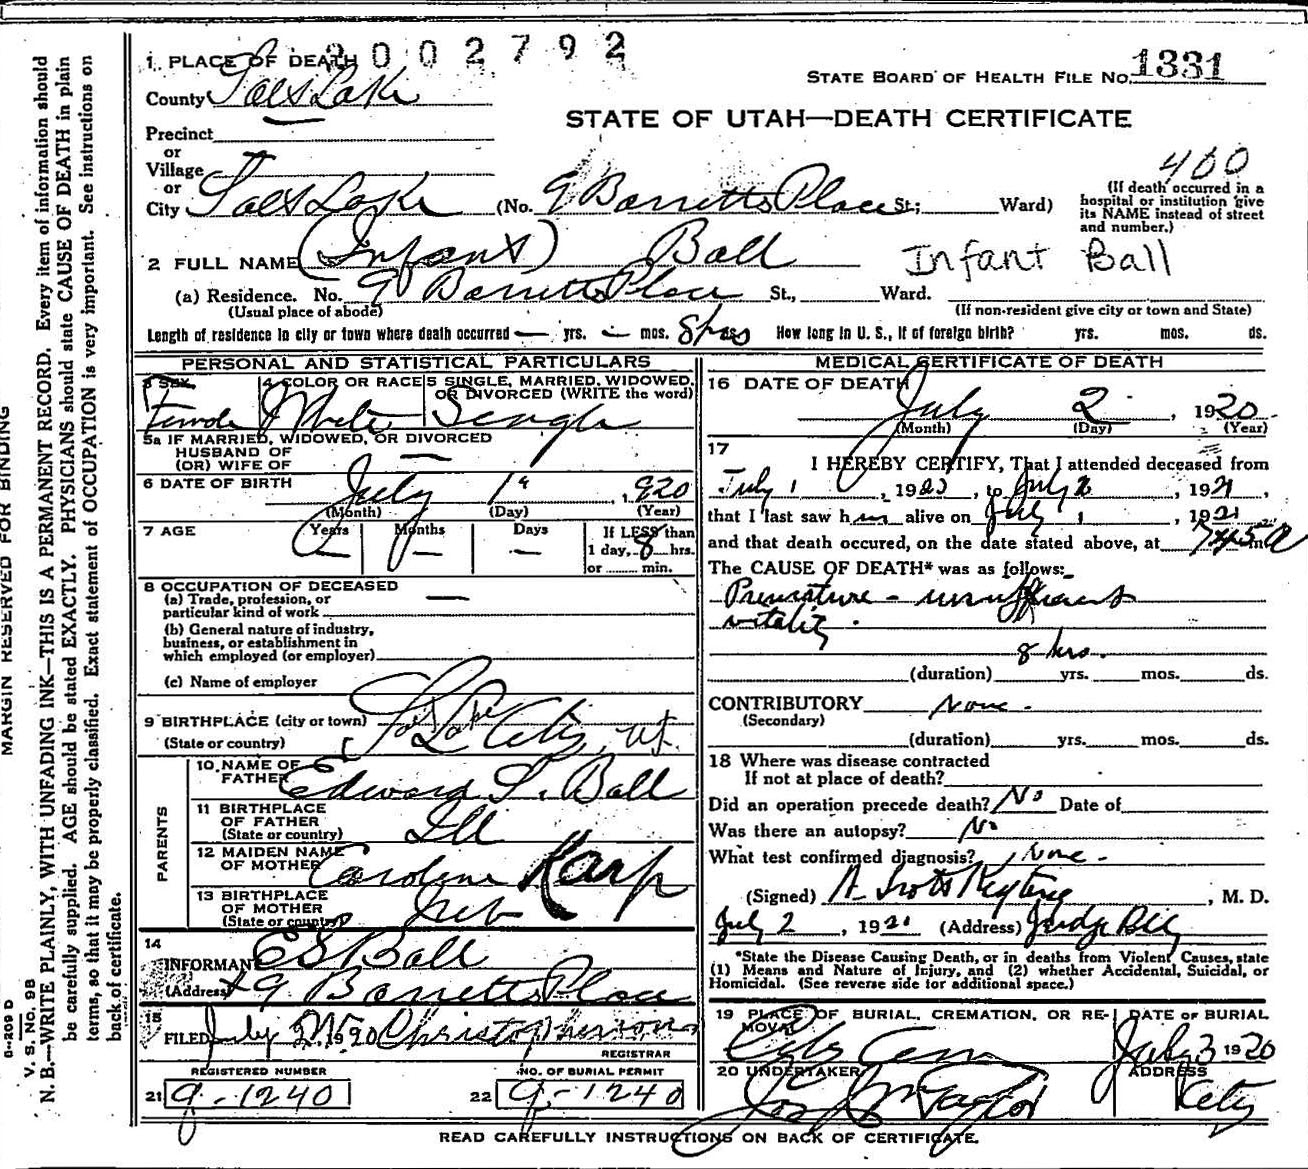 2002792
1 PLACE OF DEATH
STATE BOARD OF HEALTH FILE NO. 1331
County Salt Lake
STATE OF UTAH—DEATH CERTIFICATE
Precinct
or
Village
or
400
City Salt Lake (No. 9 Barretts Place St; Ward)
(If death occurred in a hospital or institution give its NAME instead of street and number.)
2 FULL NAME (Infant) Ball
Infant Ball
(a) Residence. No. 9 Barretts Place St., Ward.
(Usual place of abode)
(If non-resident give city or town and State)
Length of residence in city or town where death occurred — yrs. — mos. 8 hrs How long in U. S., if of foreign birth? yrs. mos. ds.
PERSONAL AND STATISTICAL PARTICULARS
3 SEX Female
4 COLOR OR RACE White
5 SINGLE, MARRIED, WIDOWED, OR DIVORCED (WRITE the word) Single
5a IF MARRIED, WIDOWED, OR DIVORCED
HUSBAND OF
(OR) WIFE OF —
6 DATE OF BIRTH July 1st, 1920
(Month) (Day) (Year)
7 AGE Years — Months — Days — If LESS than 1 day, 8 hrs. or min.
8 OCCUPATION OF DECEASED
(a) Trade, profession, or
particular kind of work —
(b) General nature of industry,
business, or establishment in
which employed (or employer)
(c) Name of employer
9 BIRTHPLACE (city or town) Salt Lake City, Ut.
(State or country)
PARENTS
10 NAME OF FATHER Edward S. Ball
11 BIRTHPLACE OF FATHER (State or country) Ill
12 MAIDEN NAME OF MOTHER Caroline Karp
13 BIRTHPLACE OF MOTHER (State or country) Neb
14
INFORMANT E S Ball
(Address) 9 Barretts Place
15
FILED July 2 1920 Christopherson
REGISTRAR
REGISTERED NUMBER
21 9-1240
NO. OF BURIAL PERMIT
22 9-1240
MEDICAL CERTIFICATE OF DEATH
16 DATE OF DEATH
July 2, 1920
(Month) (Day) (Year)
17
I HEREBY CERTIFY, That I attended deceased from
July 1, 1920, to July 2, 1921,
that I last saw him alive on July 1, 1921
and that death occured, on the date stated above, at 745 a m
The CAUSE OF DEATH* was as follows:
Premature - insufficient
vitality.
8 hrs.
(duration) yrs. mos. ds.
CONTRIBUTORY None.
(Secondary)
(duration) yrs. mos. ds.
18 Where was disease contracted
If not at place of death?
Did an operation precede death? No Date of
Was there an autopsy? No
What test confirmed diagnosis? None.
(Signed) A. Scott Keyting, M. D.
July 2, 1920 (Address) Judge Bldg
*State the Disease Causing Death, or in deaths from Violent Causes, state
(1) Means and Nature of Injury, and (2) whether Accidental, Suicidal, or
Homicidal. (See reverse side for additional space.)
19 PLACE OF BURIAL, CREMATION, OR REMOVAL City Cem
DATE OF BURIAL July 3 1920
20 UNDERTAKER Taylor
ADDRESS City
READ CAREFULLY INSTRUCTIONS ON BACK OF CERTIFICATE.
MARGIN RESERVED FOR BINDING
N. B.—WRITE PLAINLY, WITH UNFADING INK—THIS IS A PERMANENT RECORD. Every item of information should
be carefully supplied. AGE should be stated EXACTLY. PHYSICIANS should state CAUSE OF DEATH in plain
terms, so that it may be properly classified. Exact statement of OCCUPATION is very important. See instructions on
back of certificate.
V. S. NO. 98